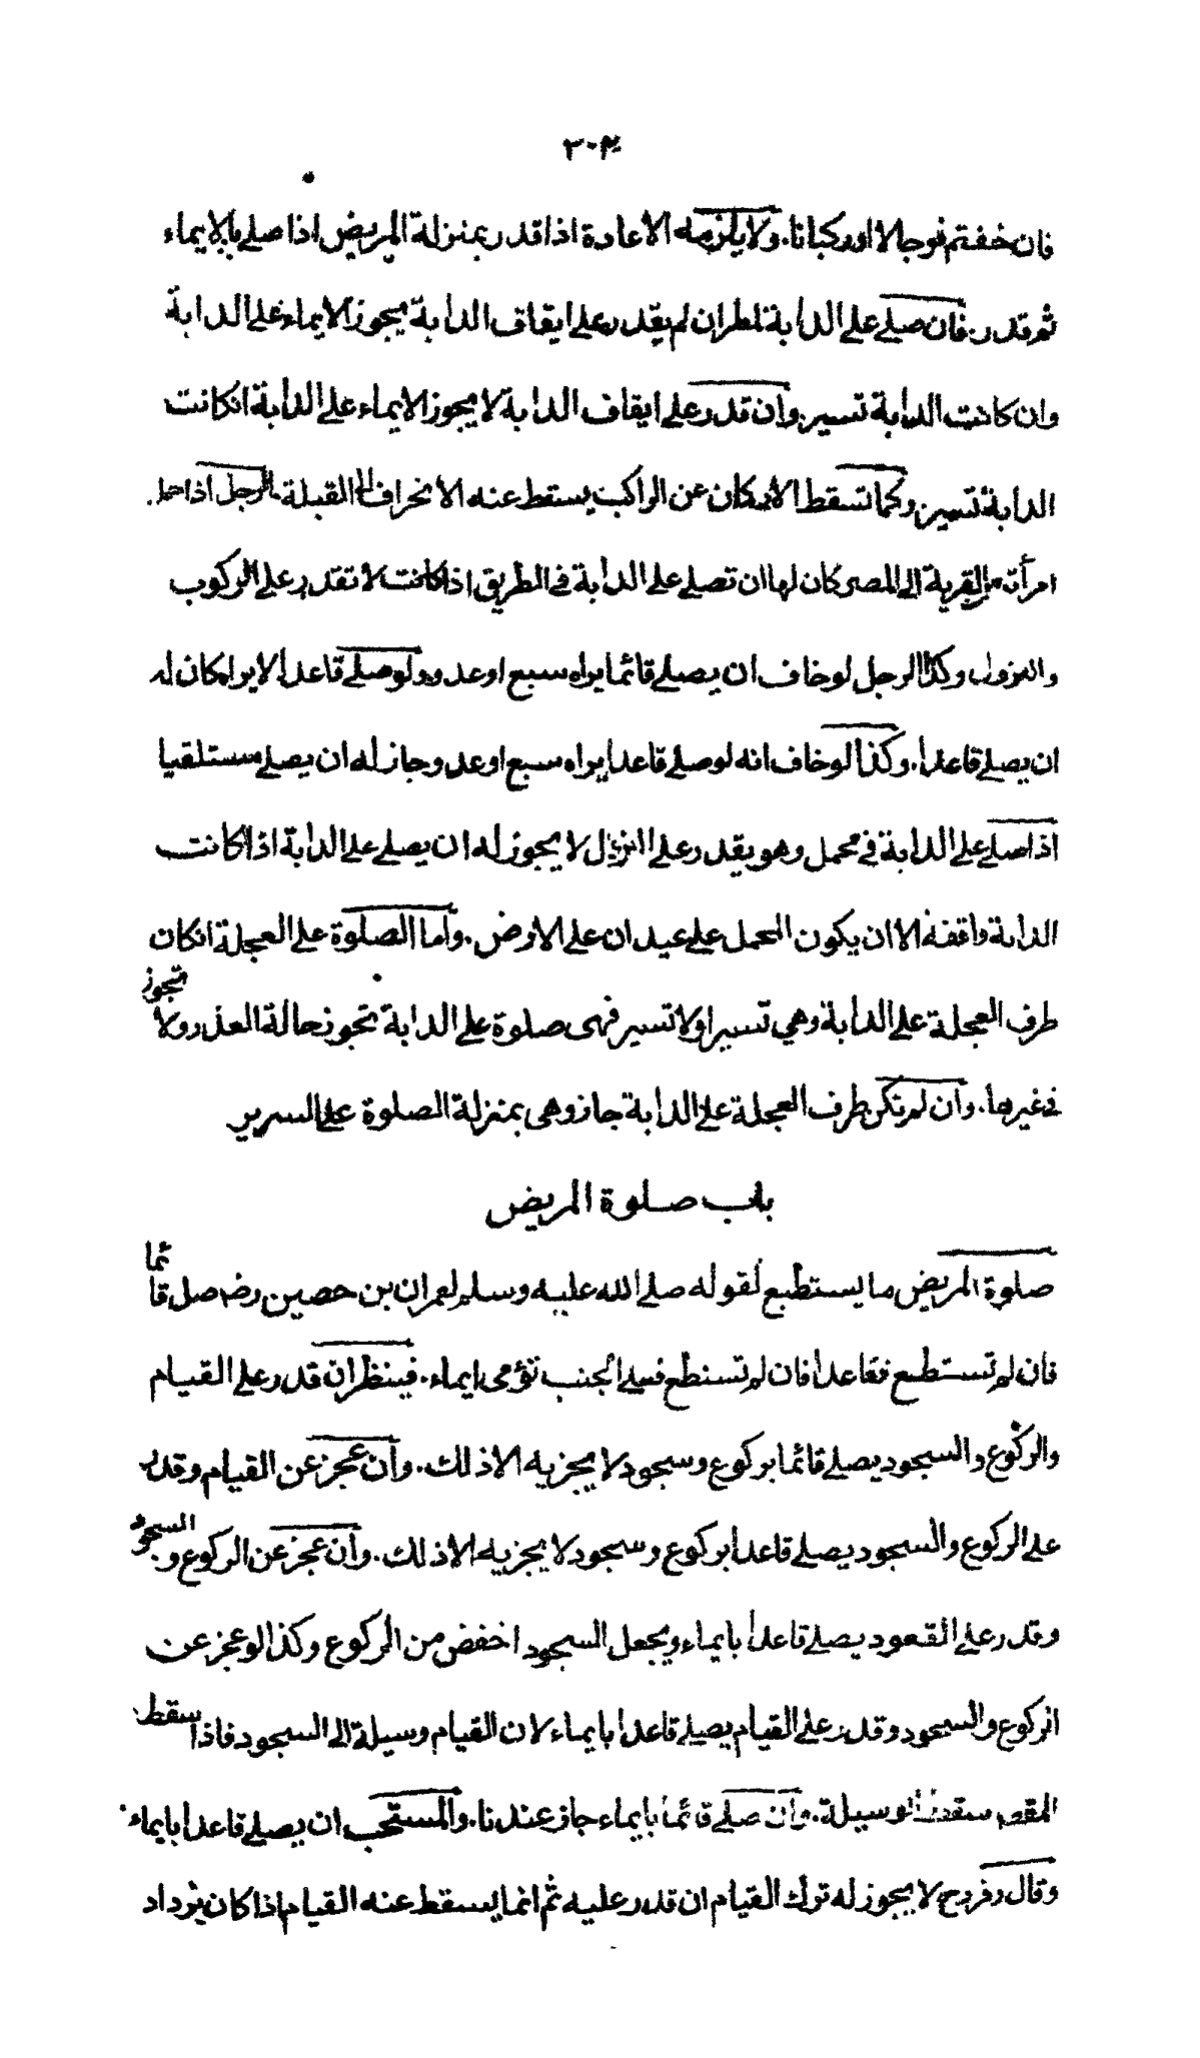 ٣٠٢
فان خفتم فرجالا او ركبانا. ولا يلزمه الاعادة اذا قدر بمنزلة المريض اذا صلے بالايماء
ثم قدر. فان صلے علے الدابة لمطران لم يقدر علے ايقاف الدابة يجوز الايماء علے الدابة
وان كانت الدابة تسير. وان قدر علے ايقاف الدابة لا يجوز الايماء علے الدابة انكانت
الدابة تسير. وكما تسقط الاركان عن الراكب يسقط عنه الانحراف الے القبلة. الرجل اذا حمل
امرأته من القرية الے المصر كان لها ان تصلے علے الدابة فے الطريق اذا كانت لا تقدر علے الركوب
والنزول وكذا الرجل لو خاف ان يصلے قائما يراه سبع او عدو ولو صلے قاعدا لا يراه كان له
ان يصلے قاعدا. وكذا لو خاف انه لو صلے قاعدا يراه سبع او عدو جاز له ان يصلے مستلقيا
اذا صلے علے الدابة فے محمل وهو يقدر علے النزول لا يجوز له ان يصلے علے الدابة اذا كانت
الدابة واقفة الا ان يكون المحمل علے عيدان علے الارض. واما الصلوة علے العجلة انكان
طرف العجلة علے الدابة وهي تسير او لا تسير فهى صلوة علے الدابة تجوز حالة العذر ولا تجوز
فے غيرها. وان لم تكن طرف العجلة علے الدابة جاز وهى بمنزلة الصلوة علے السرير
باب صلوة المريض
صلوة المريض ما يستطيع لقوله صلے الله عليه وسلم لعمران بن حصين رضه صل قائما
فان لم تستطع فقاعدا فان لم تستطع فعلے الجنب تؤمى ايماء. فينظر ان قدر علے القيام
والركوع والسجود يصلے قائما بركوع وسجود لا يجزيه الا ذلك. وان عجز عن القيام وقدر
علے الركوع والسجود يصلے قاعدا بركوع وسجود لا يجزيه الا ذلك. وان عجز عن الركوع والسجود
وقدر علے القعود يصلے قاعدا بايماء ويجعل السجود اخفض من الركوع وكذا لو عجز عن
الركوع والسجود وقدر علے القيام يصلے قاعدا بايماء لان القيام وسيلة الے السجود فاذا سقط
المقصد سقطت الوسيلة. وان صلے قائما بايماء جاز عندنا. والمستحب ان يصلے قاعدا بايماء.
وقال زفر رح لا يجوز له ترك القيام ان قدر عليه ثم انما يسقط عنه القيام اذا كان يزداد